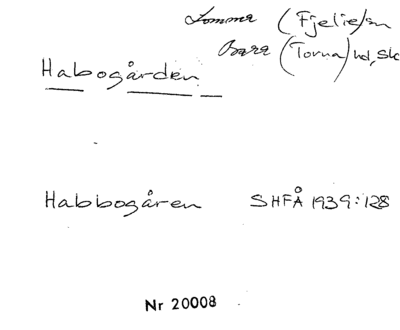 Lomma (Fjelie) sn
Bara (Torna) hd, Sk
Habogården
Habbogåren SHFÅ 1939:128
Nr 20008